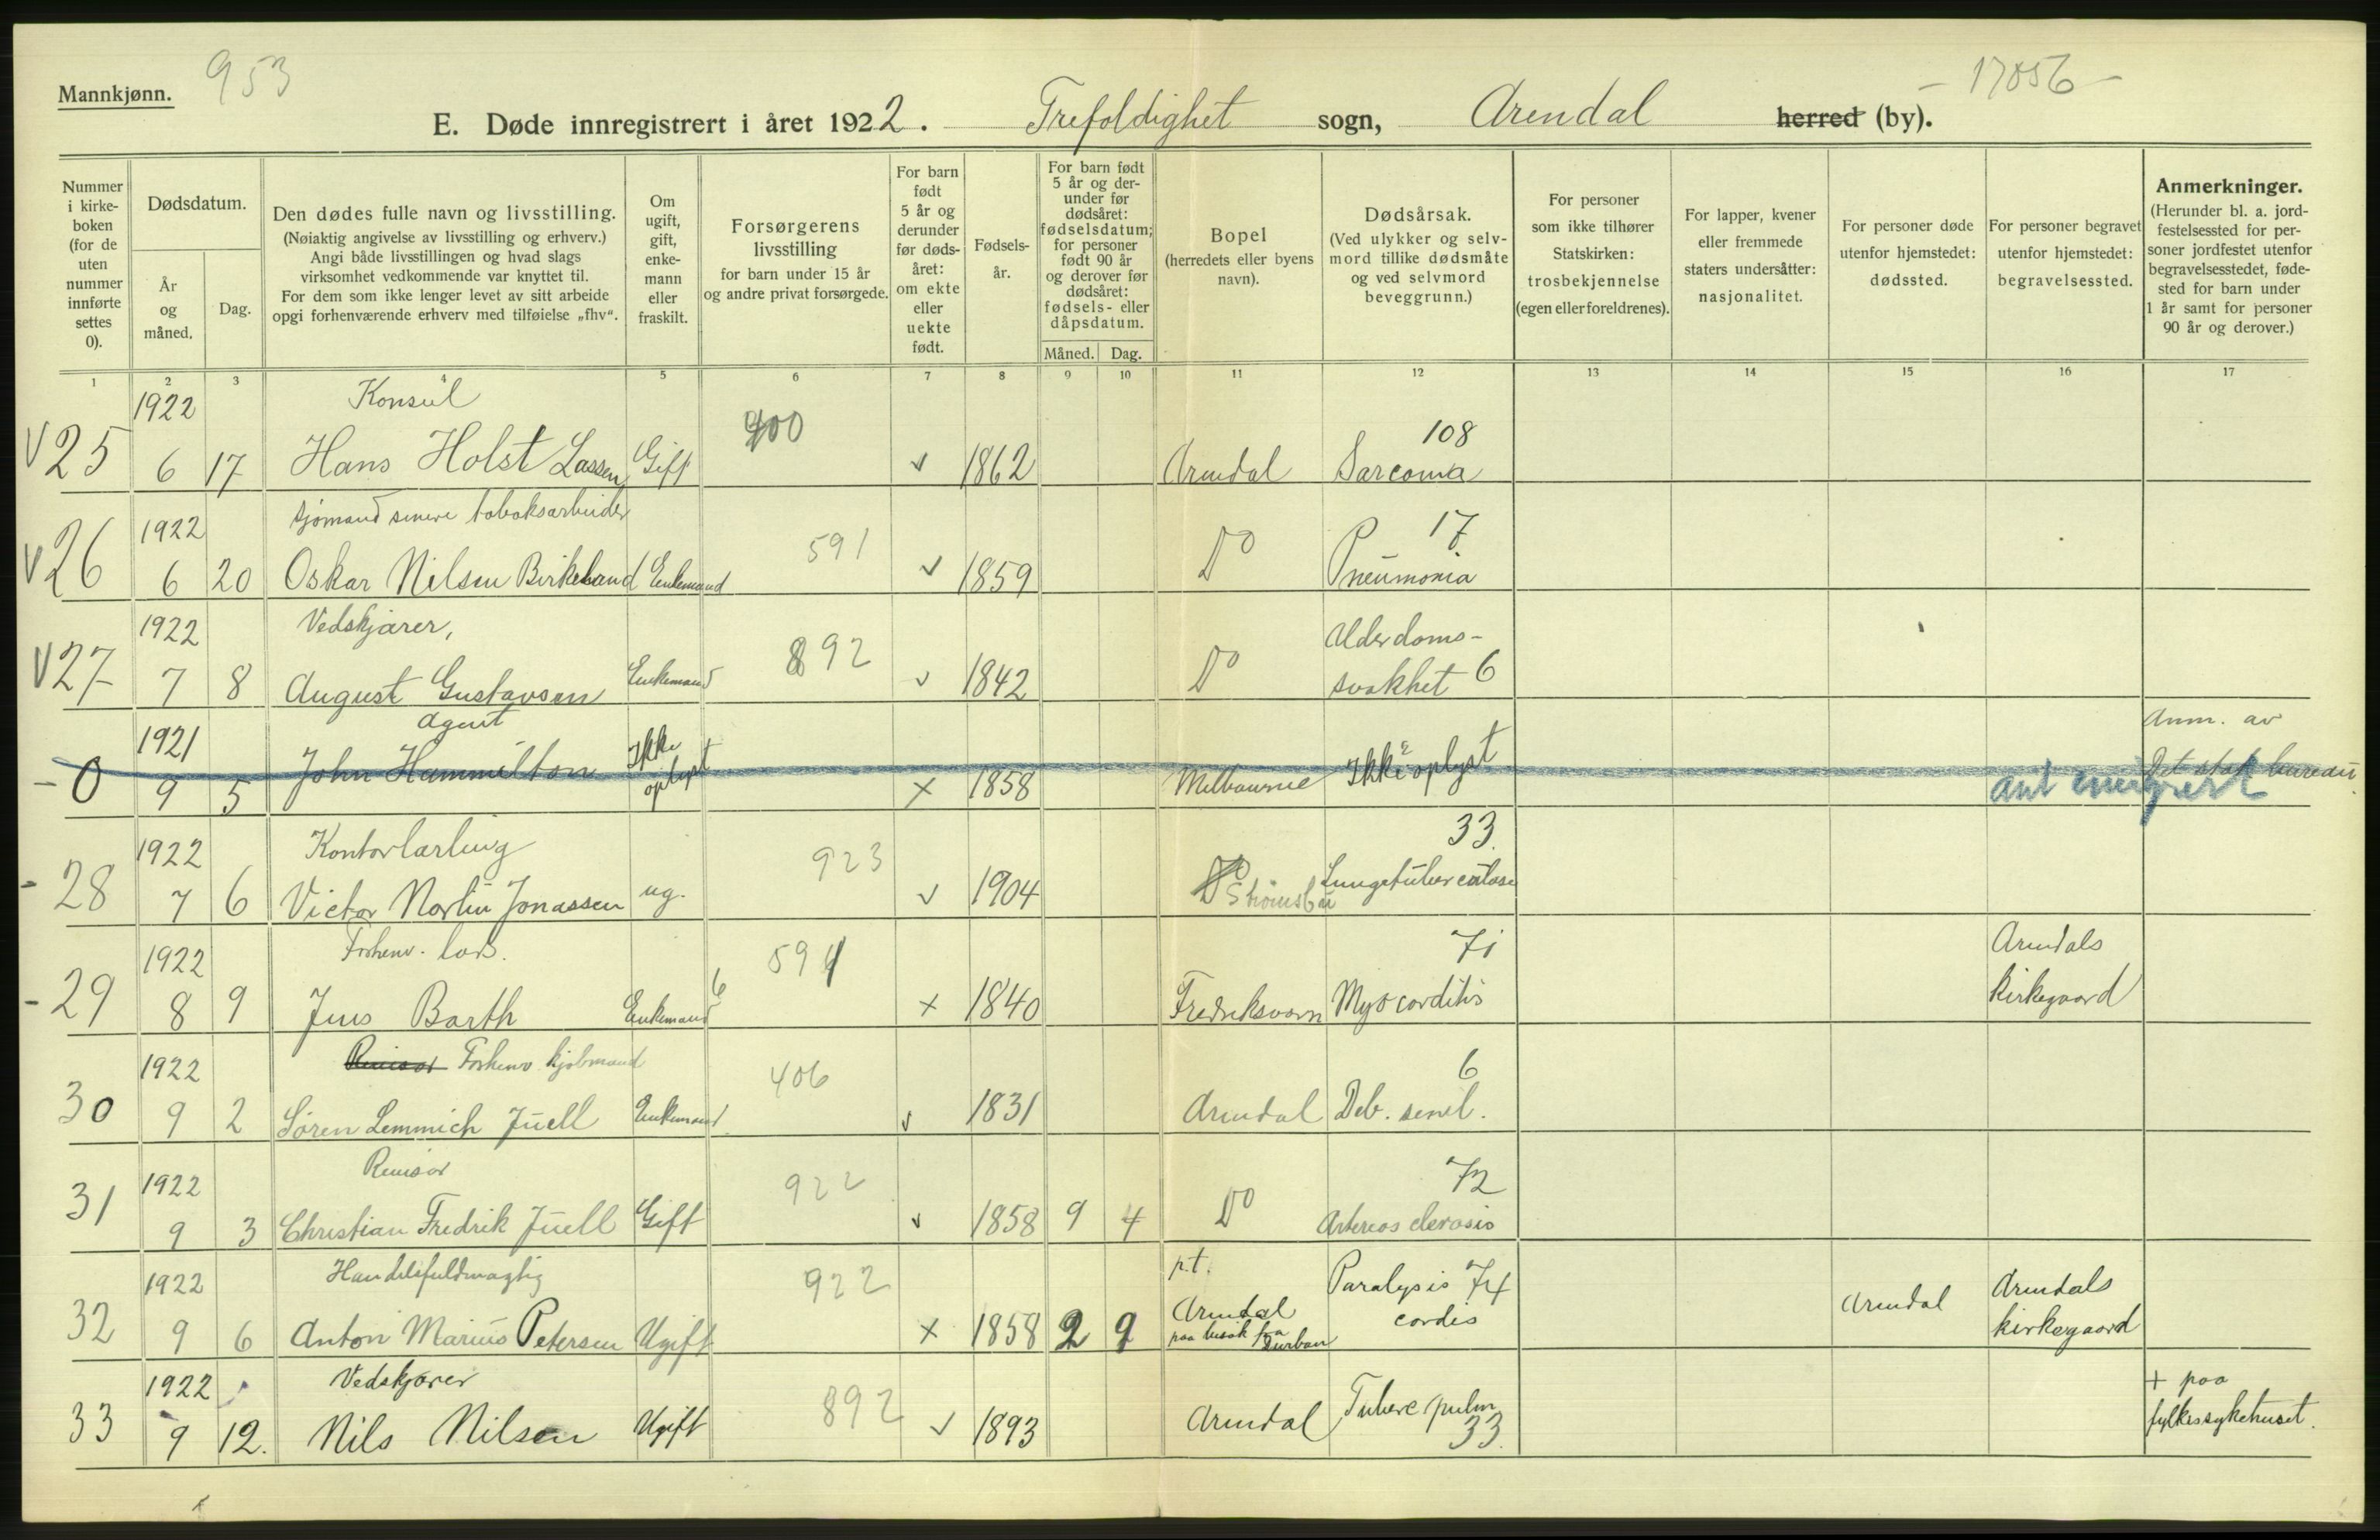 Mannkjønn.
953
- 17056 -
E. Døde innregistrert i året 1922. Trefoldighet sogn, Arendal herred (by).
Nummer i kirkeboken (for de uten nummer innførte settes 0).
Dødsdatum.
År og måned.
Dag.
Den dødes fulle navn og livsstilling.
(Nøiaktig angivelse av livsstilling og erhverv.)
Angi både livsstillingen og hvad slags
virksomhet vedkommende var knyttet til.
For dem som ikke lenger levet av sitt arbeide
opgi forhenværende erhverv med tilføielse „fhv“.
Om ugift, gift, enkemann eller fraskilt.
Forsørgerens livsstilling
for barn under 15 år
og andre privat forsørgede.
For barn født 5 år og derunder før dødsåret: om ekte eller uekte født.
Fødselsår.
For barn født 5 år og derunder før dødsåret: fødselsdatum; for personer født 90 år og derover før dødsåret: fødsels- eller dåpsdatum.
Måned. Dag.
Bopel
(herredets eller byens navn).
Dødsårsak.
(Ved ulykker og selvmord tillike dødsmåte og ved selvmord beveggrunn.)
For personer som ikke tilhører Statskirken: trosbekjennelse (egen eller foreldrenes).
For lapper, kvener eller fremmede staters undersåtter: nasjonalitet.
For personer døde utenfor hjemstedet: dødssted.
For personer begravet utenfor hjemstedet: begravelsessted.
Anmerkninger.
(Herunder bl. a. jordfestelsessted for personer jordfestet utenfor begravelsesstedet, fødested for barn under 1 år samt for personer 90 år og derover.)
1 2 3 4 5 6 7 8 9 10 11 12 13 14 15 16 17
1922 Konsul 108
V 25 6 17 Hans Holst Lassen Gift 400 v 1862 Arendal Sarcoma
1922 Sjømand senere tobaksarbeider 17
V 26 6 20 Oskar Nilsen Birkeland Enkemand 591 v 1859 Do Pneumonia
1922 Vedskjærer, Alderdoms-
V 27 7 8 August Gustavsen Enkemand 892 v 1842 Do svakhet 6
1921 Agent Anm. av
- 0 9 5 John Hammilton Ikke oplyst x 1858 Melbourne Ikke oplyst Det stat. bureau
ant emigrert
1922 Kontorlærling 923 33.
- 28 7 6 Victor Martin Jonassen ug. v 1904 Do Strømsbu Lungetuberculose
1922 Forhenv. lods. 71 Arendals
- 29 8 9 Jens Barth Enkemand 6 594 x 1840 Fredriksvarn Myocarditis kirkegaard
1922 Revisor Forhenv kjøbmand 406 6
30 9 2 Søren Lemmich Juell Enkemand v 1831 Arendal Deb. senil.
1922 Revisor 922 72
31 9 3 Christian Fredrik Juell Gift v 1858 9 4 Do Arteriosclerosis
1922 Handelsfuldmægtig 922 p.t. Paralysis 74 Arendals
32 9 6 Anton Marius Petersen Ugift x 1858 2 9 Arendal paa besøk fra Durban cordis Arendal kirkegaard
1922 Vedskjærer + paa
33 9 12. Nils Nilsen Ugift 892 v 1893 Arendal Tuberc pulm 33. fylkessykehuset.